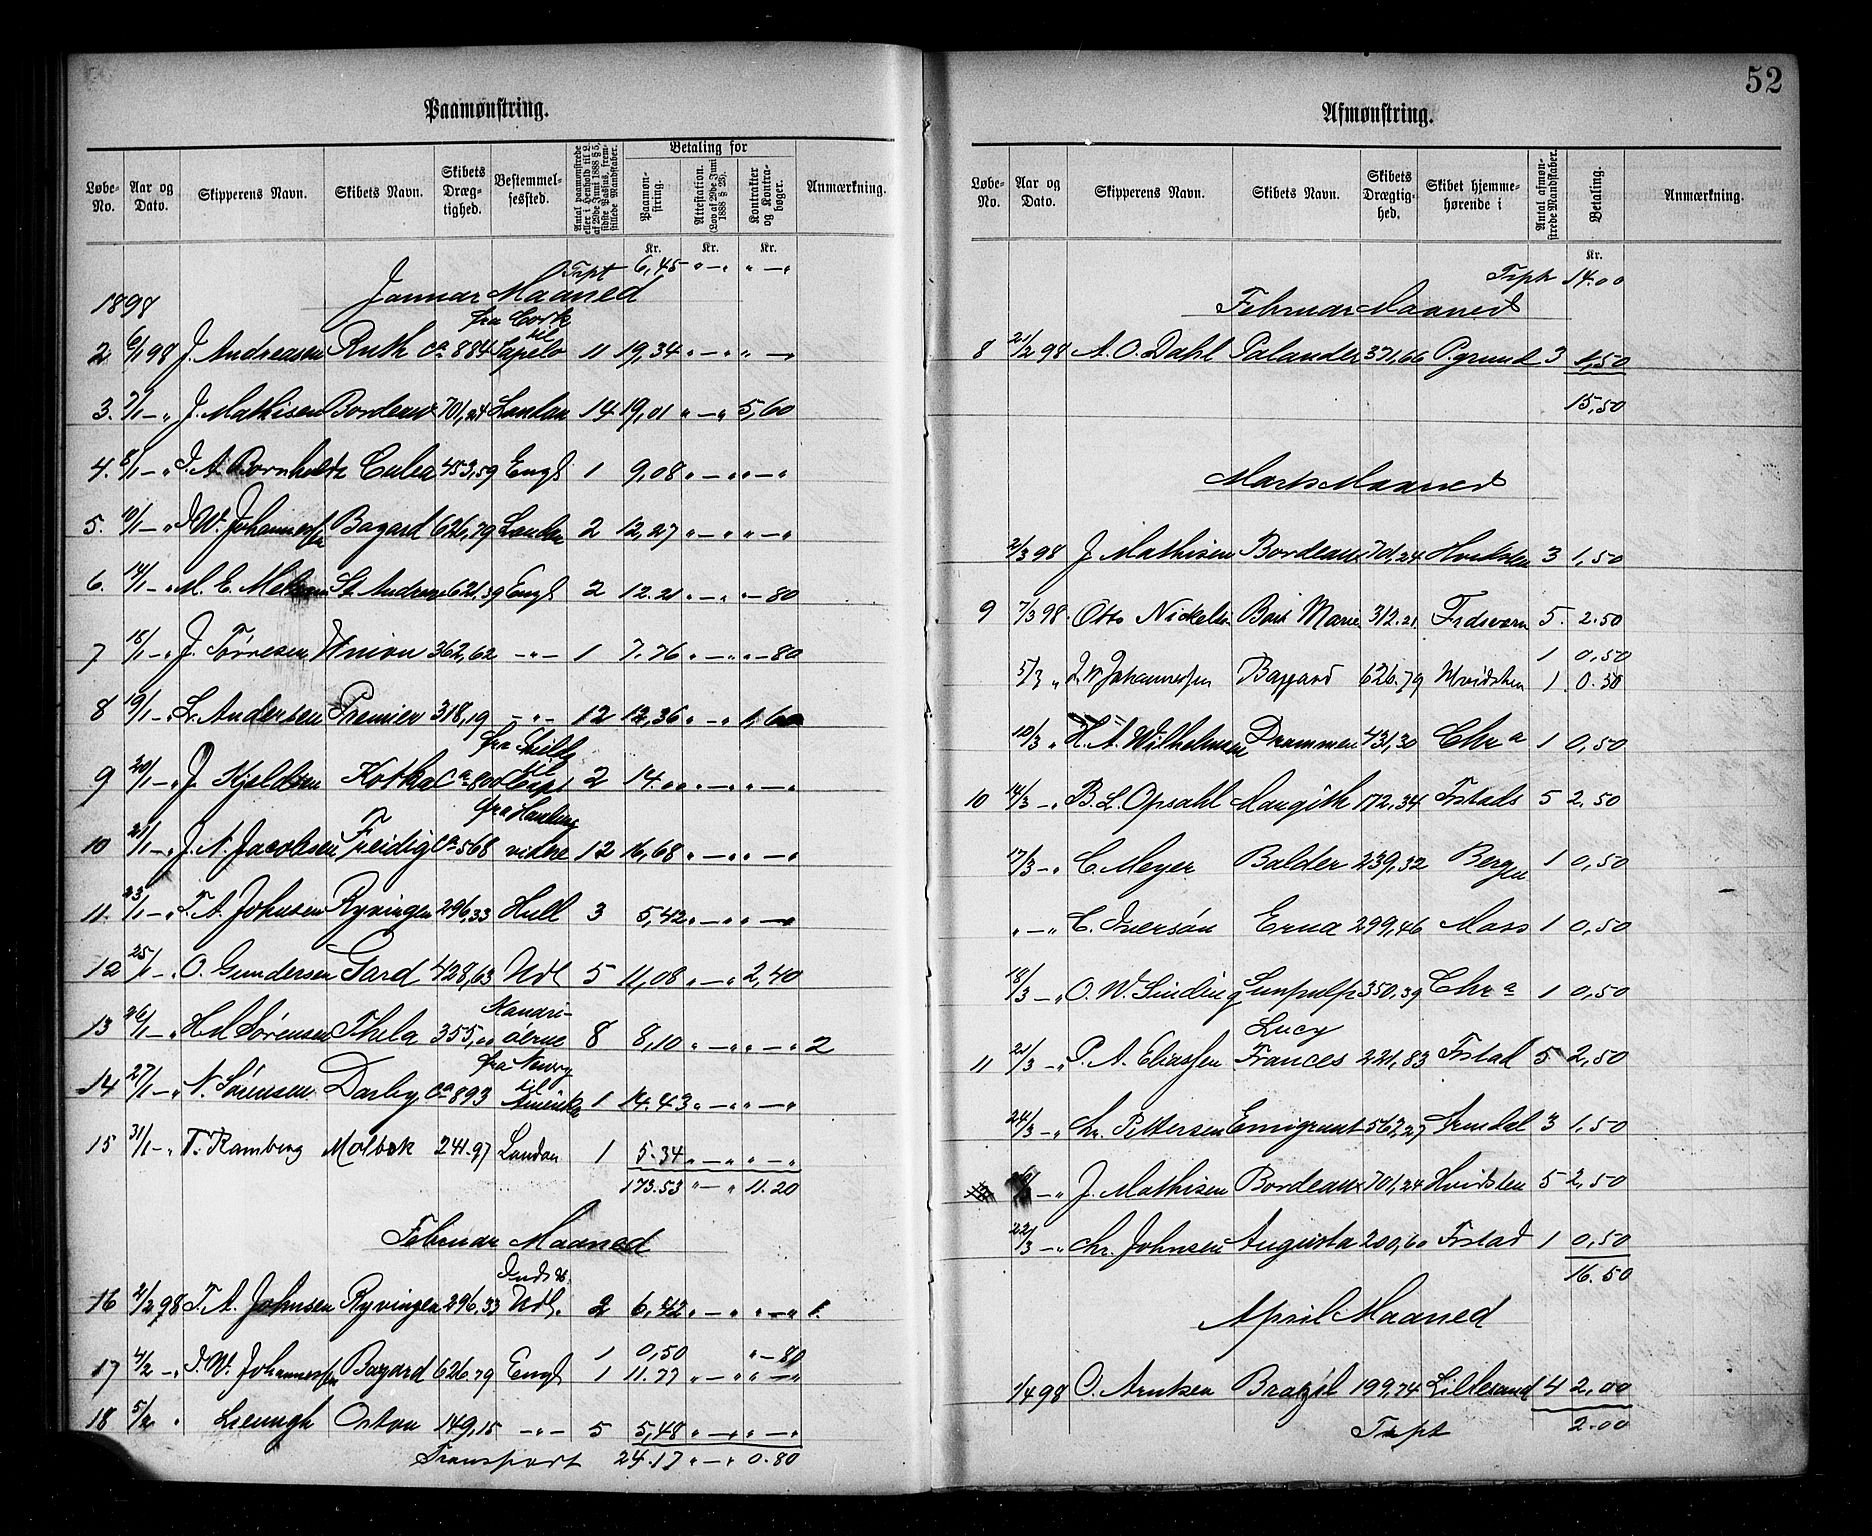 Paamønstring.
Løbe-No. Aar og Dato. Skipperens Navn. Skibets Navn. Skibets Dræg-tighed. Bestemmel-sessted. Antal paamønstrede eller i Henhold til L. af 29de Juni 1888 § 5, sidste Passus, frem-stillede Mandskaber. Betaling for Paamøn-string. Attestation. (Lov af 29de Juni 1888 § 23). Kontrakter og Kontra-bøger. Anmærkning.
Kr. Kr. Kr.
Trpt 6,45 " — " " — "
Januar Maaned
1898
fra Cork til
2 6/1 98 J. Andreasen Ruth ca 884 Sapelo 11 19,34 " — " " — "
3. 7/1 — " J. Mathisen Bordeaux 701,24 London 14 19,01 " — " 5,60
4. 8/1 — " A. Bornholdt Culer 453,59 Engl 1 9,08 " — " " — "
5. 10/1 — " J. W. Johannessen Bazard 626,79 London 2 12,27 " — " " — "
6. 14/1 — " M. E. St. Andrew 621,39 Engl 2 12.21 " — " " — 80
7 18/1 — " J. Tørresen Union 362,62 — " — 1 7.76 " — " " — 80
8 19/1 — " L. Andersen Premier 318,19 — " — 12 12,36 " — " 1,60
fra til
9 20/1 — " J. Kjeldsen Kotka ca 800 2 14.00 " — " " — "
fra Hamburg
10 21/1 — " J. N. Jacobsen Freidig ca 568 videre 12 16,68 " — " " — "
11. 23/1 — " T. A. Johnsen Ryvingen 296,33 Hull 3 5,42 " — " " — "
12 25/1 — " O. Gundersen Gard 428,63 Udl 5 11,08 " — " 2,40
Kanari-
13 26/1 — " H. M. Sørensen Thela 355,00 øerne 8 8,10 " — " " — " 2
fra til
14 27/1 — " N. Sørensen Darby ca 893 Amerika 1 14.43 " — " " — "
15 31/1 — " T. Ramberg Molbek 241.97 London 1 5.34 " — " " — "
173.53 " — " 11.20
Februar Maaned
16 2/2 98 T. A. Johnsen Ryvingen 296,33 Udl. 2 6,42 " — " " — " 1.
1 0,50 " — 80
17 4/2 — " J. W. Johannessen Bazard 626.79 Engl 1 11.77 " — " " — "
18 5/2 " Astrea 149,15 — " — 5 5,48 " — " " — "
Transport 24.17 " — " 0.80
52
Afmønstring.
Løbe-No. Aar og Dato. Skipperens Navn. Skibets Navn. Skibets Drægtig-hed. Skibet hjemme-hørende i Antal afmøn-strede Mandskaber. Betaling. Anmærkning.
Kr.
Trpt 14.00
Februar Maaned
8 21/2 98 A. O. Dahl Palander 371,66 P.grund 3 1,50
15,50
Marts Maaned
2/3 98 J. Mathisen Bordeaux 701,24 Hvidsten 3 1,50
9 7/3 98. Otto Nickelsen Bris Marie 312.21 Frdsværn 5. 2.50
1 0,50
5/3 " J. W. Johannessen Bazard 626.79 Hvidsten 1. 0.50
10/3 " H. A. Wilhelmsen Drammen 431,30 Chra 1 0,50
10 14/3 — " B. L. Opsahl Margith 172.34 Frstads 5 2,50
17/3 — " C. Meyer Balder 239,32 Bergen 1 0,50
" — " C. Iversøn Erna 299,46 Moss 1 0,50
18/3 — " O. W. Sinding 350,39 Chra 1 0,50
Lucy
11 21/3 — " P. A. Eliassen Frances 221,83 Frstad 5 2,50
24/3 — " Chr. Pettersen Emigrant 563,27 Arendal 3 1,50
— " J. Mathisen Bordeaux 701,24 Hvidsten 5 2,50
22/3 — " Chr. Johnsen Augusta 200,60 Frstad 1 0,50
16.50
April Maaned
1/4 98 O. Arntsen Brazil 199,74 Lillesand 4 2,00
Trpt 2.00